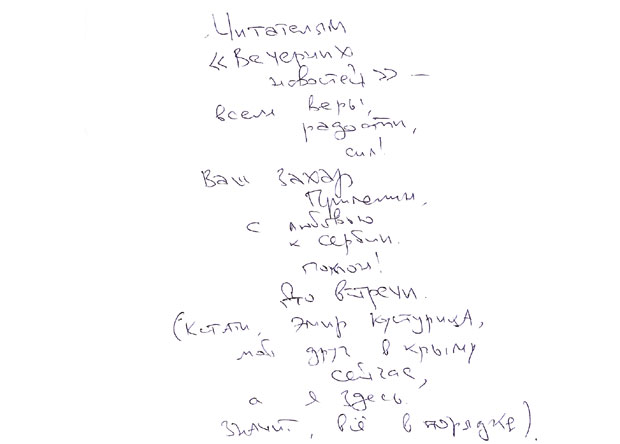 Читателям
«Вечерних
новостей» –
всем веры,
радости,
сил!
Ваш Захар
Прилепин,
с любовью
к Сербии.
До встречи.
(Кстати, Эмир Кустурица,
мой друг в Крыму
сейчас,
а я здесь.
Значит, всё в порядке).